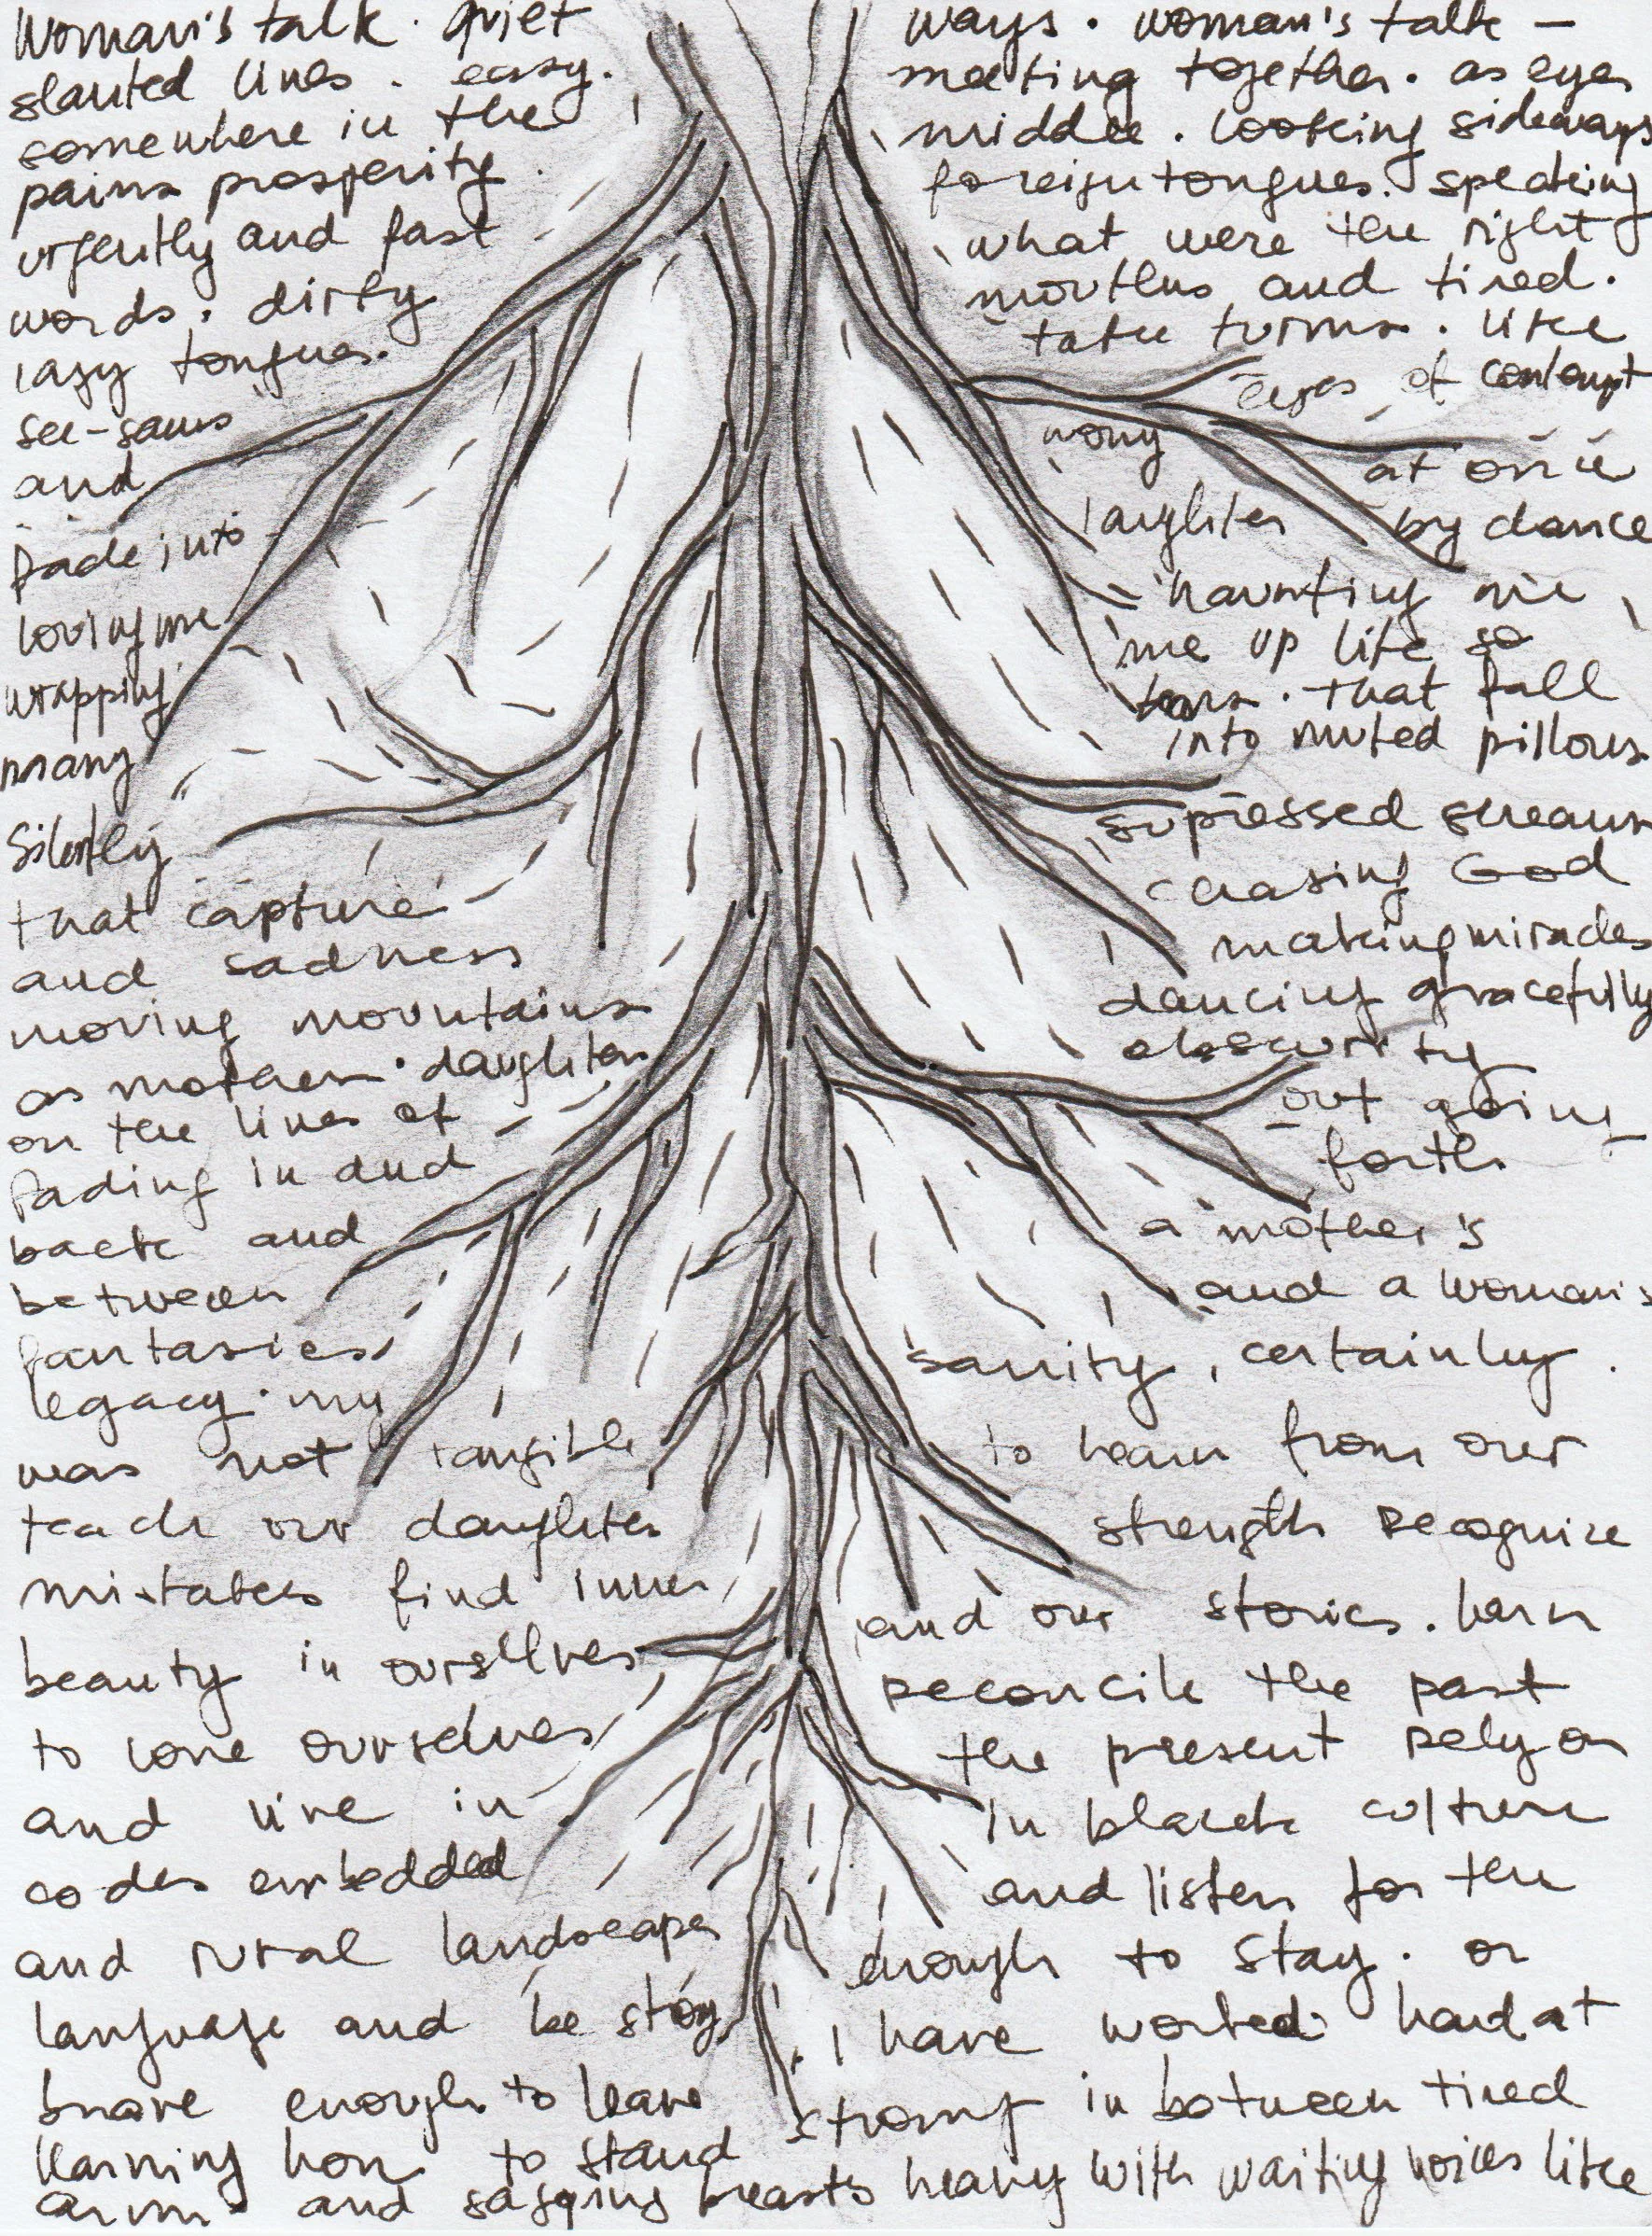 Woman's talk. quiet ways. woman's talk –
slanted lines. easy. meeting together. as eyes
somewhere in the middle. looking sideways
pains prosperity. foreign tongues. speaking
urgently and fast what were the right
words. dirty mouths and tired.
lazy tongues. take turns. like
see-saws eyes of contempt
and wrong at once
fade into laughter by dance
loving me haunting me
wrapping me up like so
many tears. that fall
Silently into muted pillows
supressed screams
that capture chasing God
and sadness making miracles
moving mountains dancing gracefully
as mothers. daughters obscurity
on the lines of out going
fading in and forth
back and a mother's
between and a woman's
fantasies sanity, certainly.
legacy. my
was not tangible to learn from our
teach our daughters strength recognize
mistakes find inner and our stories. learn
beauty in ourselves reconcile the past
to love ourselves the present rely on
and live in in black culture
codes embedded and listen for the
and rural landscapes enough to stay. or
language and be I have worked hard at
brave enough to leave strong in between tired
learning how to stand
arms and sagging breasts heavy with waiting voices like